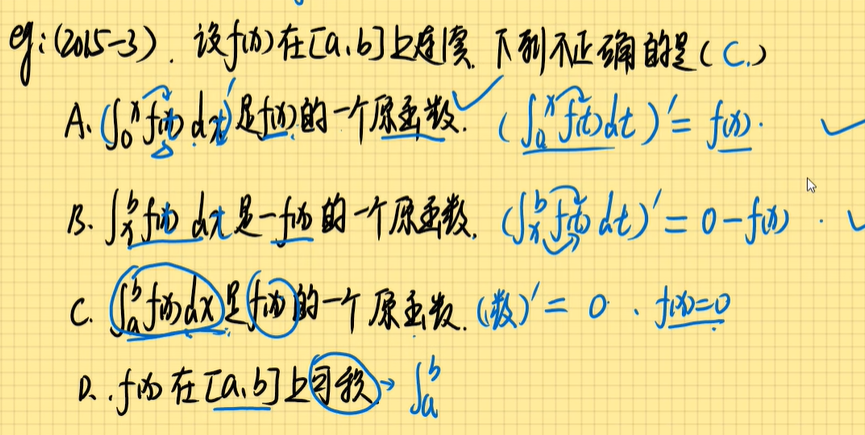 eg:(2015-3). 设f(x)在[a,b]上连续. 下列不正确的是(C.)
A. (∫₀ˣ f(t) dt)' 是f(x)的一个原函数. ✓ (∫ₐˣ f(t)dt)' = f(x). ✓
B. ∫ₓᵇ f(t) dt 是-f(x)的一个原函数. (∫ₓᵇ f(t)dt)' = 0-f(x). ✓
C. ∫ₐᵇ f(x)dx 是f(x)的一个原函数. (数)' = 0. f(x)=0
D. f(x)在[a,b]上可积 → ∫ₐᵇ